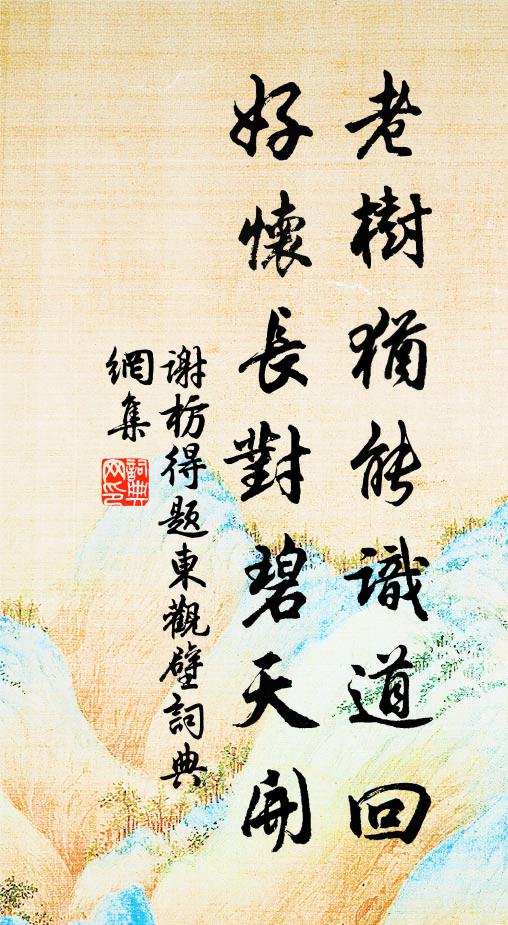 老樹猶能識道回
好懷長對碧天開
謝枋得題東觀壁詞典
網集
詞典
网印